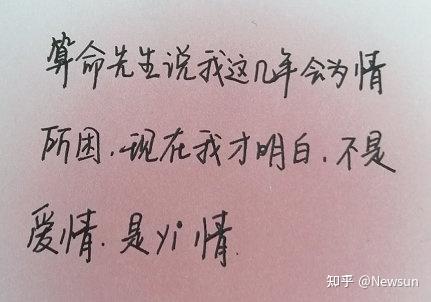 算命先生说我这几年会为情
所困.现在我才明白.不是
爱情.是yi情.
知乎 @Newsun